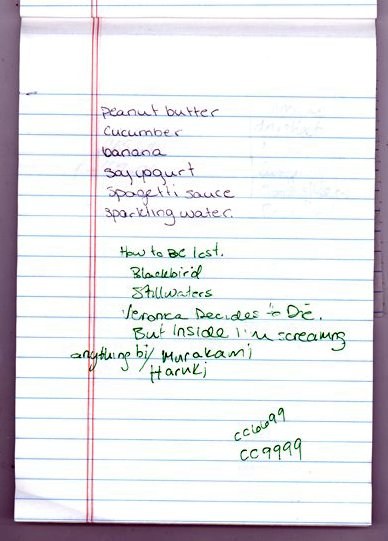 peanut butter
cucumber
banana
soy yogurt
spagetti sauce
sparkling water.
How to Be lost.
Blackbird
Stillwaters
Veronica Decides to Die.
But Inside I'm screaming
anything by/ Murakami
Haruki
CC6699
CC9999